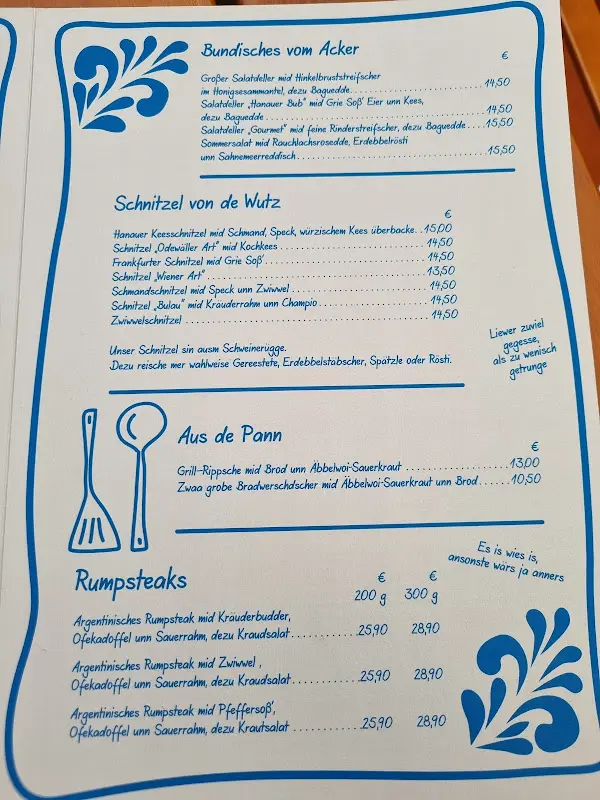 Bundisches vom Acker
€
Großer Salatdeller mid Hinkelbruststreifscher
im Honigsesammantel, dezu Baguedde..............14,50
Salatdeller „Hanauer Bub" mid Grie Soß' Eier unn Kees,
dezu Baguedde..............14,50
Salatdeller „Gourmet" mid feine Rinderstreifscher, dezu Baguedde...15,50
Sommersalat mid Rauchlachsrosedde, Erdebbelrösti
unn Sahnemeerreddisch..............15,50
Schnitzel von de Wutz
€
Hanauer Keesschnitzel mid Schmand, Speck, würzischem Kees überbacke..15,00
Schnitzel „Odewäller Art" mid Kochkees..............14,50
Frankfurter Schnitzel mid Grie Soß'..............14,50
Schnitzel „Wiener Art"..............13,50
Schmandschnitzel mid Speck unn Zwiwwel..............14,50
Schnitzel „Bulau" mid Kräuderrahm unn Champio..............14,50
Zwiwwelschnitzel..............14,50
Unser Schnitzel sin ausm Schweinerügge.
Dezu reische mer wahlweise Gereestete, Erdebbelstäbscher, Spätzle oder Rösti.
Liewer zuviel
gegesse,
als zu wenisch
getrunge
Aus de Pann
€
Grill-Rippsche mid Brod unn Äbbelwoi-Sauerkraut..............13,00
Zwaa grobe Bradwerschdscher mid Äbbelwoi-Sauerkraut unn Brod......10,50
Es is wies is,
ansonste wärs ja anners
Rumpsteaks
€ €
200 g 300 g
Argentinisches Rumpsteak mid Kräuderbudder,
Ofekadoffel unn Sauerrahm, dezu Kraudsalat............25,90 28,90
Argentinisches Rumpsteak mid Zwiwwel ,
Ofekadoffel unn Sauerrahm, dezu Kraudsalat............25,90 28,90
Argentinisches Rumpsteak mid Pfeffersoß',
Ofekadoffel unn Sauerrahm, dezu Krautsalat............25,90 28,90